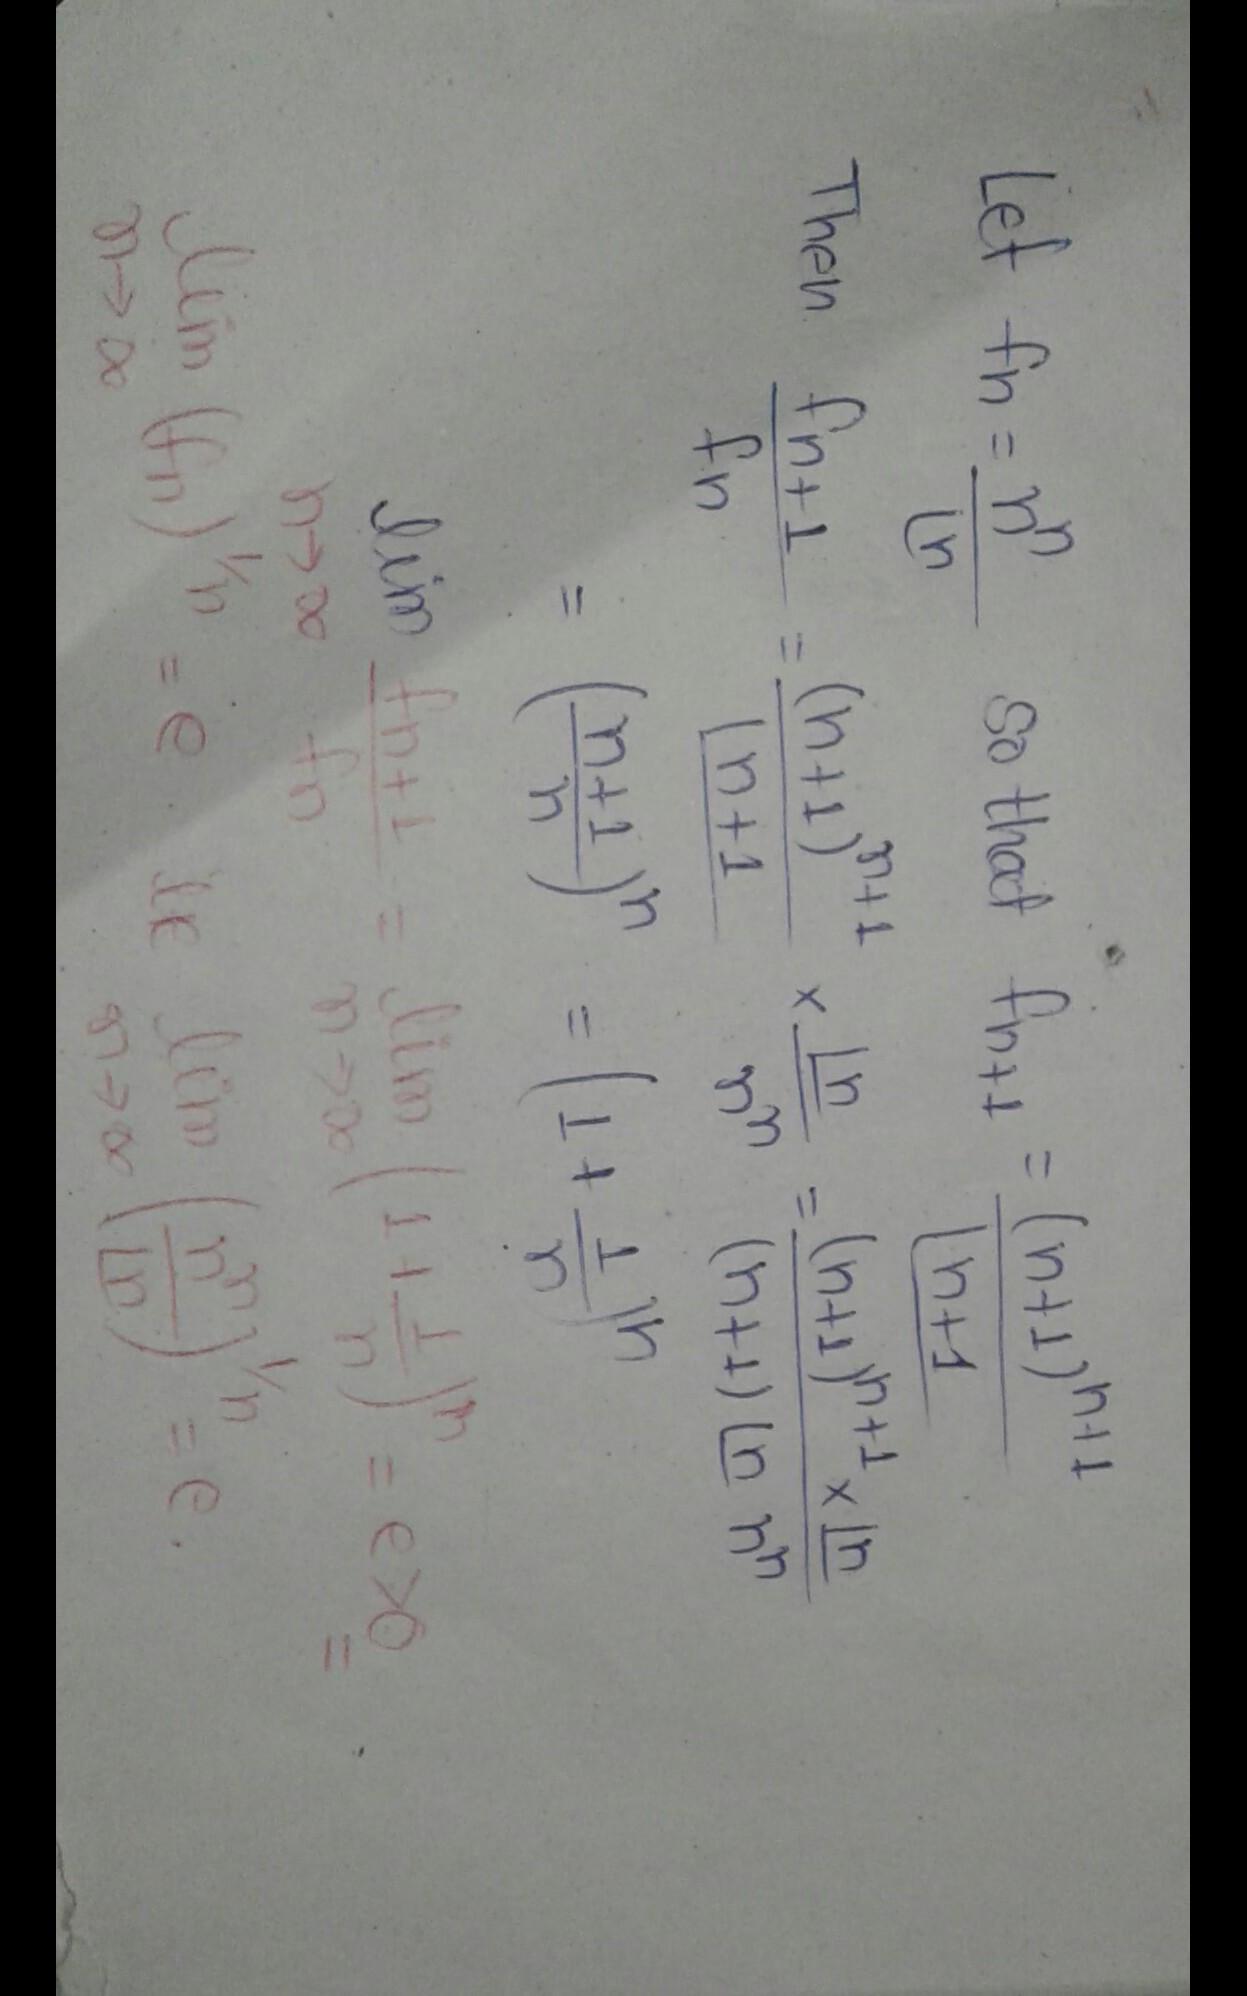 Let fn = n^n / |n so that fn+1 = (n+1)^n+1 / |n+1
Then fn+1 / fn = (n+1)^n+1 / |n+1 × |n / n^n = (n+1)^n+1 × |n / (n+1) |n n^n
= (n+1 / n)^n = (1 + 1/n)^n
lim n→∞ fn+1 / fn = lim n→∞ (1 + 1/n)^n = e > 0
lim n→∞ (fn)^1/n = e lim n→∞ (n^n / |n)^1/n = e.